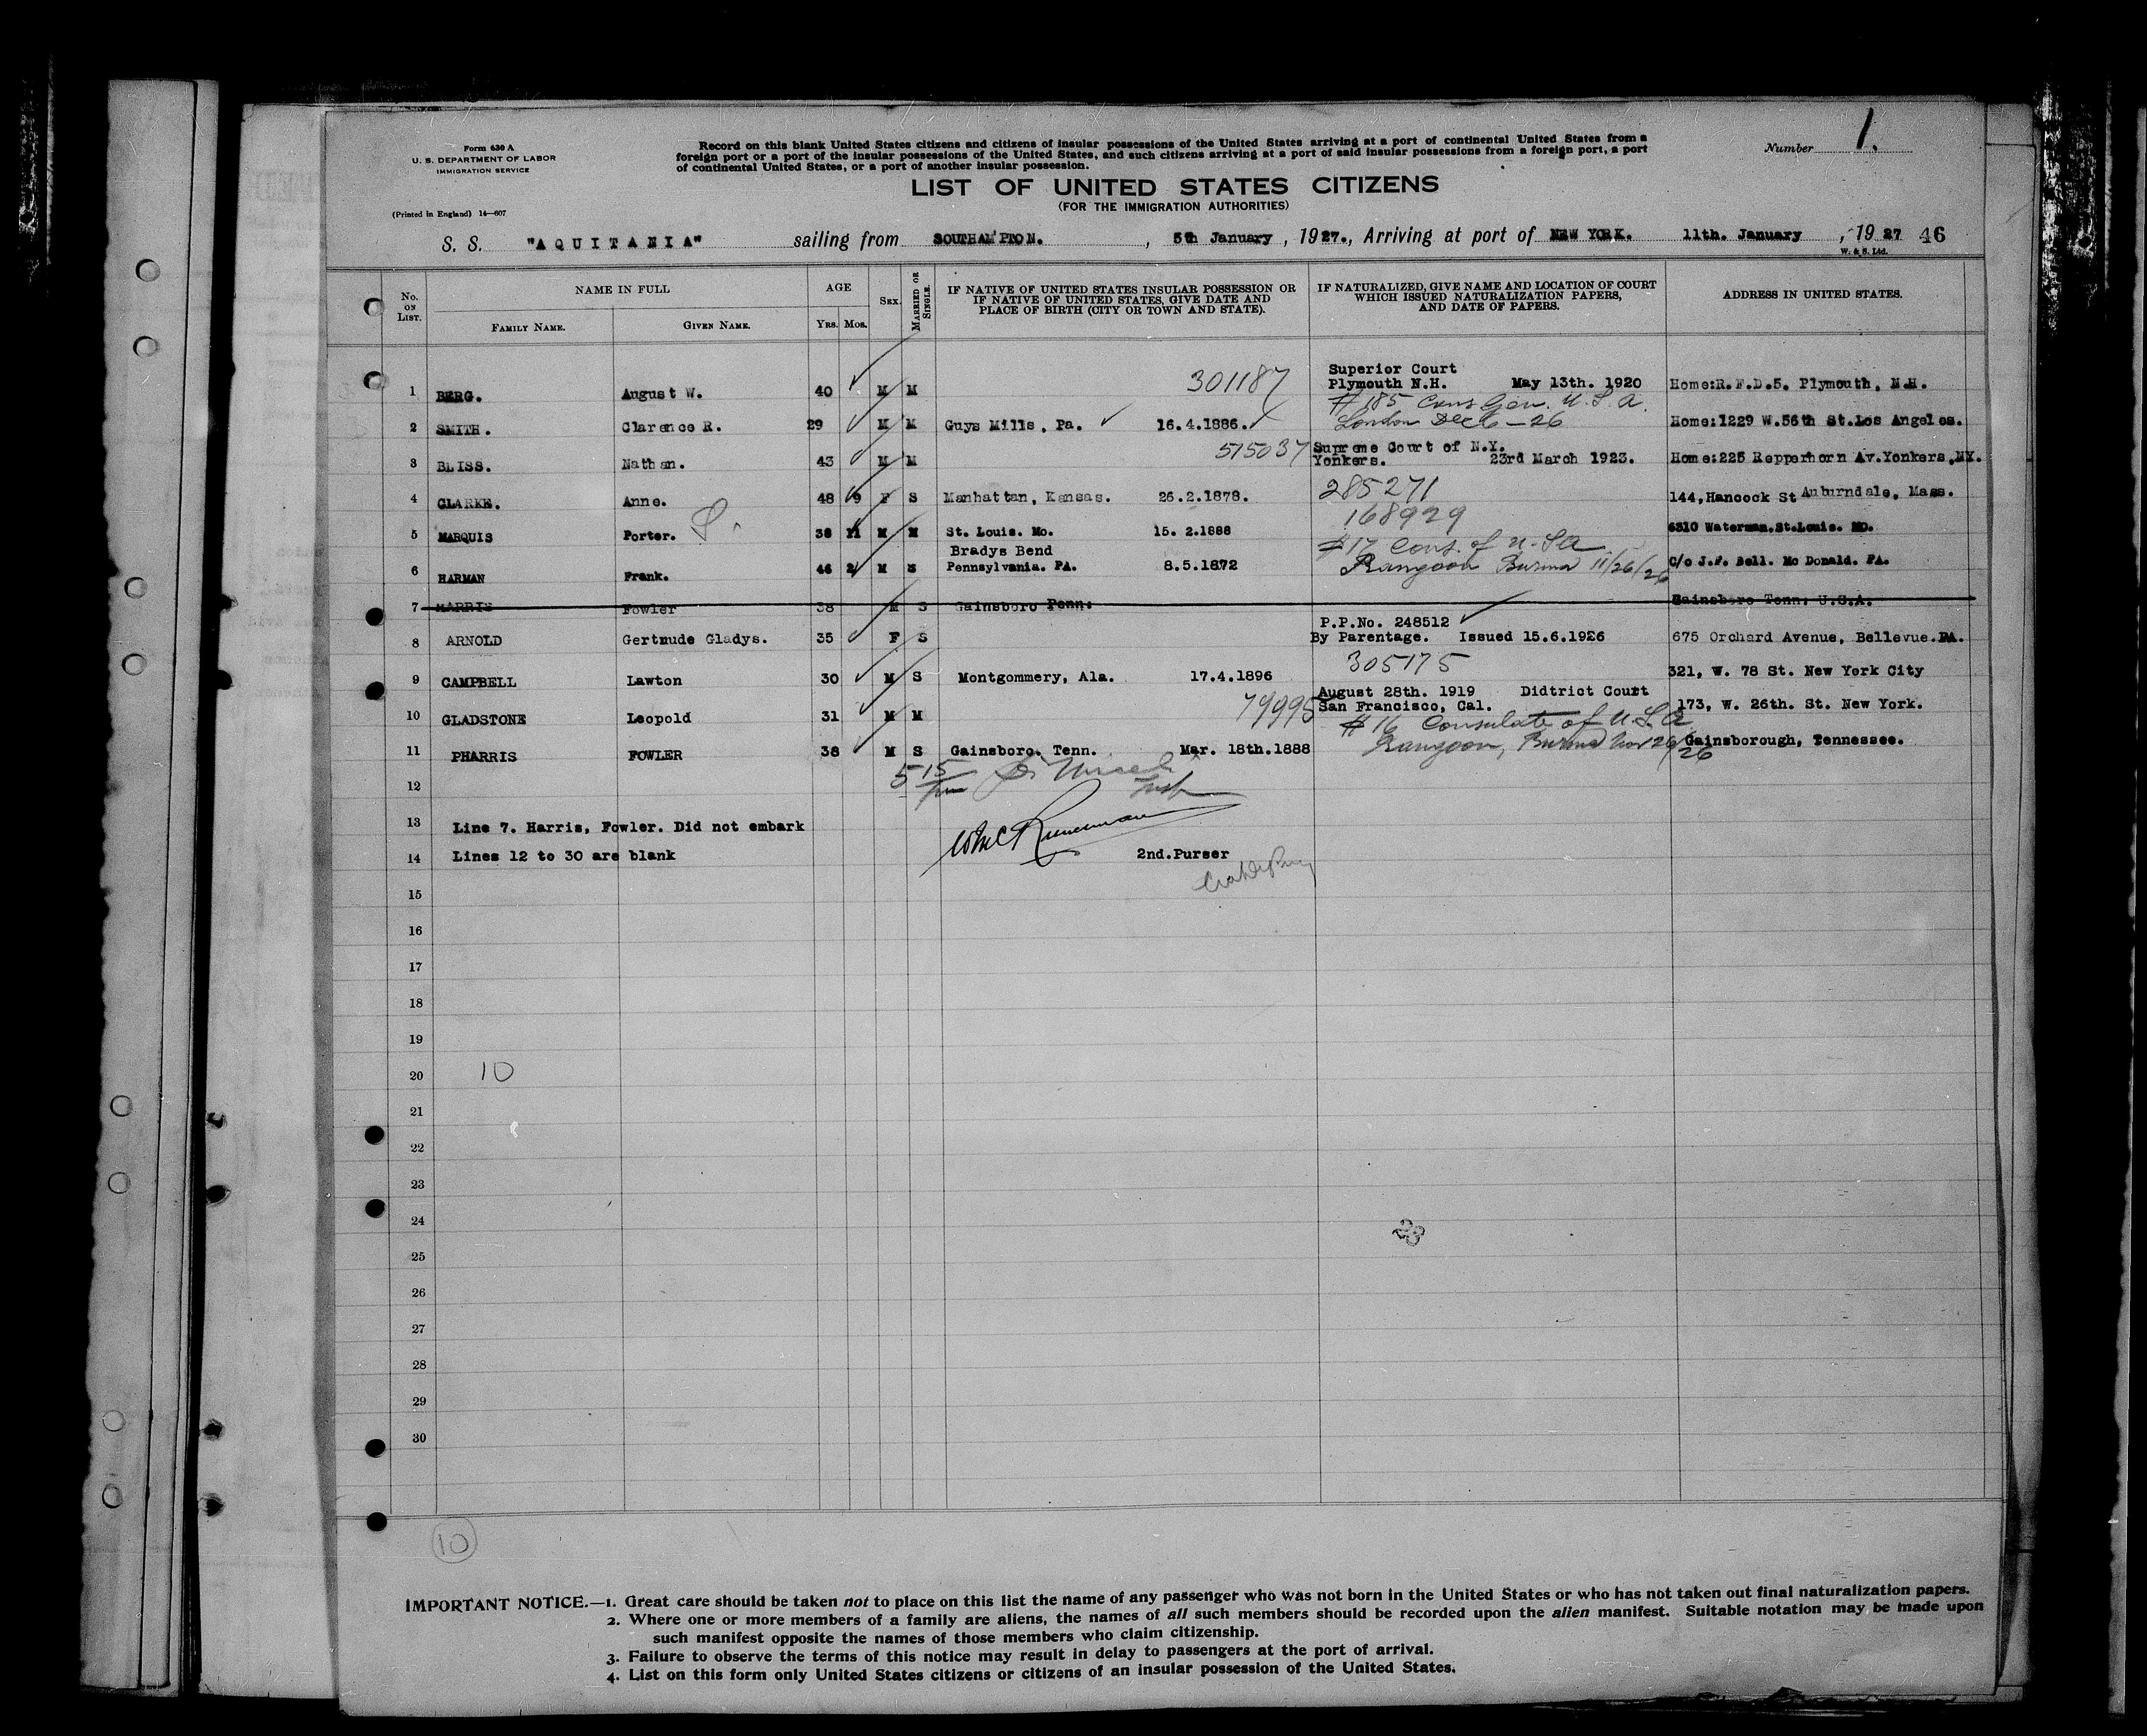 Form 630 A
U. S. DEPARTMENT OF LABOR
IMMIGRATION SERVICE
(Printed in England) 14—607
Record on this blank United States citizens and citizens of insular possessions of the United States arriving at a port of continental United States from a
foreign port or a port of the insular possessions of the United States, and such citizens arriving at a port of said insular possessions from a foreign port, a port
of continental United States, or a port of another insular possession.
Number 1.
LIST OF UNITED STATES CITIZENS
(FOR THE IMMIGRATION AUTHORITIES)
S. S. "AQUITANIA" sailing from SOUTHAMPTON. , 5th January , 1927., Arriving at port of NEW YORK. 11th. January , 1927 46
W. & S. Ltd.
No. ON LIST. NAME IN FULL AGE SEX. MARRIED OR SINGLE. IF NATIVE OF UNITED STATES INSULAR POSSESSION OR IF NATIVE OF UNITED STATES, GIVE DATE AND PLACE OF BIRTH (CITY OR TOWN AND STATE). IF NATURALIZED, GIVE NAME AND LOCATION OF COURT WHICH ISSUED NATURALIZATION PAPERS, AND DATE OF PAPERS. ADDRESS IN UNITED STATES.
FAMILY NAME. GIVEN NAME. YRS. MOS.
Superior Court
1 BERG. August W. 40 M M 301187 Plymouth N.H. May 13th. 1920 Home:R.F.D.5. Plymouth, N.H.
#185 Cons Gen. U.S.A.
2 SMITH. Clarence R. 29 M M Guys Mills, Pa. 16.4.1886. London Dec 6-26 Home:1229 W.56th St.Los Angeles.
515037 Supreme Court of N.Y.
3 BLISS. Nathan. 43 M M Yonkers. 23rd March 1923. Home:225 Repperhorn Av.Yonkers,NY.
4 CLARKE. Anne. 48 9 F S Manhattan, Kansas. 26.2.1878. 285271 144,Hancock St Auburndale, Mass.
168929
5 MARQUIS Porter. 38 11 M M St. Louis. Mo. 15. 2.1888 6310 Waterman.St.Louis. MO.
Bradys Bend #17 Cons. of U.S.A
6 HARMAN Frank. 46 2 M S Pennsylvania. PA. 8.5.1872 Rangoon Burma 11/26/26 C/o J.F. Bell. Mc Donald. PA.
7 HARRIS Fowler 38 M S Gainsboro Penn: Gainsboro Tenn: U.S.A.
P.P.No. 248512
8 ARNOLD Gertrude Gladys. 35 F S By Parentage. Issued 15.6.1926 675 Orchard Avenue, Bellevue.PA.
305175
9 CAMPBELL Lawton 30 M S Montgommery, Ala. 17.4.1896 321, W. 78 St. New York City
August 28th. 1919 Didtrict Court
10 GLADSTONE Leopold 31 M M 79995 San Francisco, Cal. 173, W. 26th. St. New York.
#16 Consulate of U.S.A
11 PHARRIS FOWLER 38 M S Gainsboro. Tenn. Mar. 18th.1888 Rangoon, Burma Nov 26/26 Gainsborough, Tennessee.
12
13 Line 7. Harris, Fowler. Did not embark
14 Lines 12 to 30 are blank 2nd.Purser
15
16
17
18
19
20 10
21
22
23
24 23
25
26
27
28
29
30
10
IMPORTANT NOTICE.—1. Great care should be taken not to place on this list the name of any passenger who was not born in the United States or who has not taken out final naturalization papers.
2. Where one or more members of a family are aliens, the names of all such members should be recorded upon the alien manifest. Suitable notation may be made upon
such manifest opposite the names of those members who claim citizenship.
3. Failure to observe the terms of this notice may result in delay to passengers at the port of arrival.
4. List on this form only United States citizens or citizens of an insular possession of the United States.